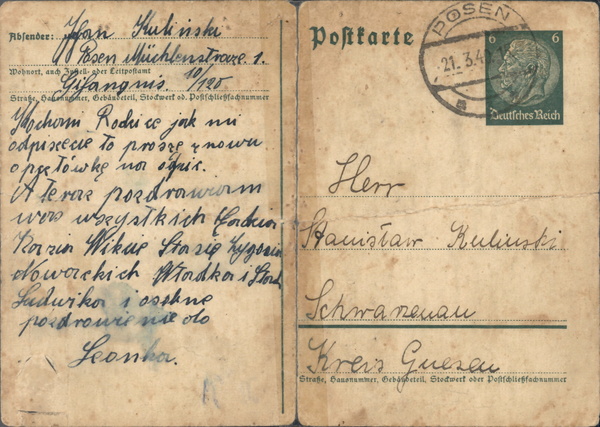 Absender: Jan Kuliński
Posen Mühlenstrasse 1.
Wohnort, auch Zustell- oder Leitpostamt
Gifängnis. 10/120
Straße, Hausnummer, Gebäudeteil, Stockwerk od. Postschließfachnummer
Kochani Rodzice jak mi
odpiszecie to proszę znowu
o pcztówkę na odpis.
A teraz pozdrawiam
was wszystkich
Kazia Stasię
Nowackich Władka i
Ludwika i osobne
pozdrowienie do
Leonka.
Postkarte
POSEN
21. 3.4
6 6
Deutsches Reich
Herr
Stanisław Kulinski
Schwarzenau
Kreis Gnesen
Straße, Hausnummer, Gebäudeteil, Stockwerk oder Postschließfachnummer